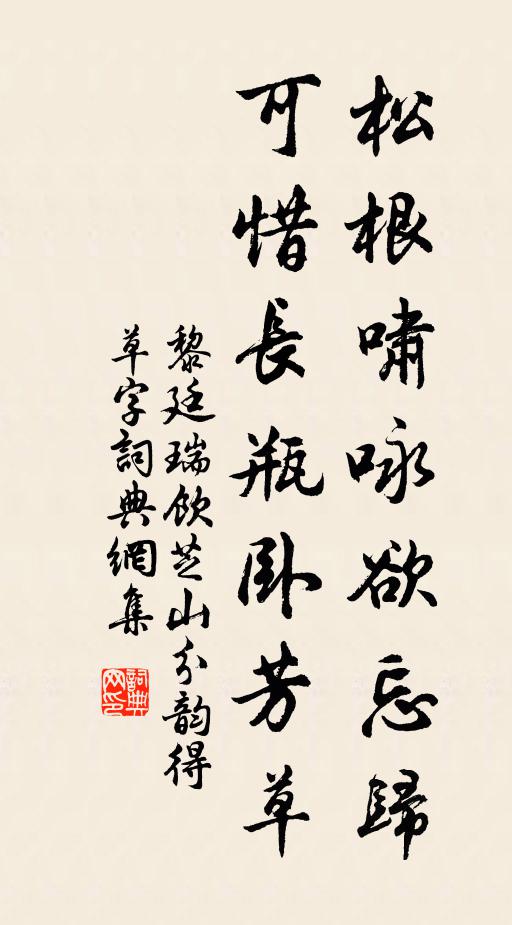 松根嘯咏欲忘歸
可惜長瓶卧芳草
黎廷瑞飲芝山分韵得
草字詞典網集
詞典网印